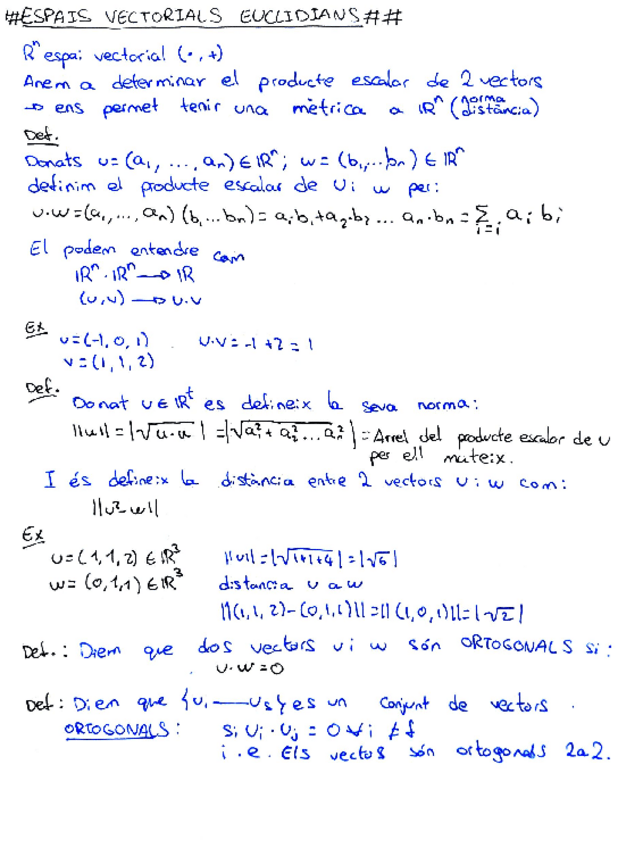 #ESPAIS VECTORIALS EUCLIDIANS##
Rⁿ espai vectorial (·,+)
Anem a determinar el producte escalar de 2 vectors
→ ens permet tenir una mètrica a ℝⁿ (norma distància)
Def.
Donats u=(a₁, ..., aₙ)∈ℝⁿ; w=(b₁,...bₙ)∈ℝⁿ
definim el producte escalar de u i w per:
u·w=(a₁,...,aₙ)(b₁...bₙ)=a₁b₁+a₂·b₂...aₙ·bₙ=∑ᵢ₌ᵢ aᵢbᵢ
El podem entendre com
ℝⁿ·ℝⁿ→ℝ
(u,v)→u·v
Ex
u=(-1,0,1) u·v=-1+2=1
v=(1,1,2)
Def.
Donat u∈ℝᵗ es defineix la seva norma:
||u||=|√u·u|=|√a₁²+a₂²...aₙ²|=Arrel del producte escalar de u
per ell mateix.
I és defineix la distància entre 2 vectors u i w com:
||u-w||
Ex
u=(1,1,2)∈ℝ³ ||u||=|√1+1+4|=|√6|
w=(0,1,1)∈ℝ³ distancia u a w
||(1,1,2)-(0,1,1)||=||(1,0,1)||=|√2|
Def.: Diem que dos vectors u i w són ORTOGONALS si:
u·w=0
Def: Diem que {u₁—uₛ} es un conjunt de vectors
ORTOGONALS: si uᵢ·uⱼ=0 ∀i≠j
i.e. Els vectors són ortogonals 2a2.